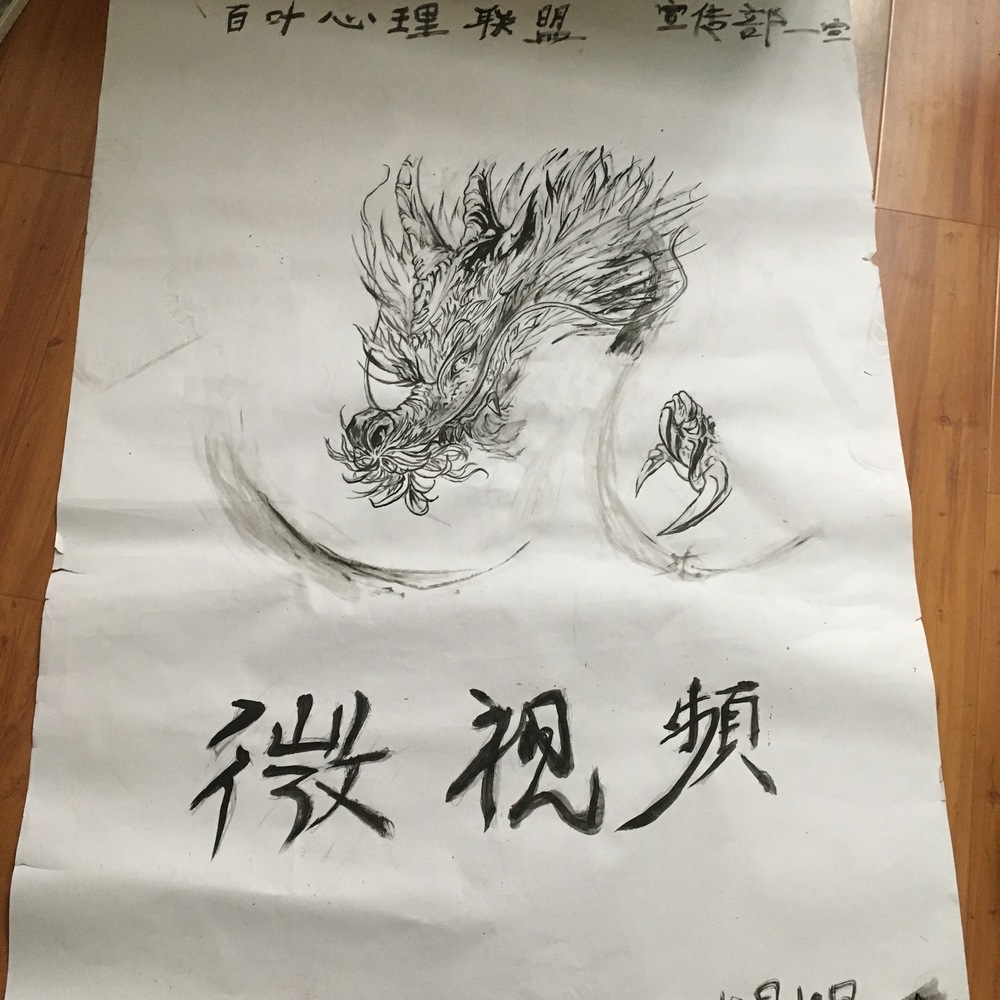 百叶心理联盟 宣传部一宣
微视頻